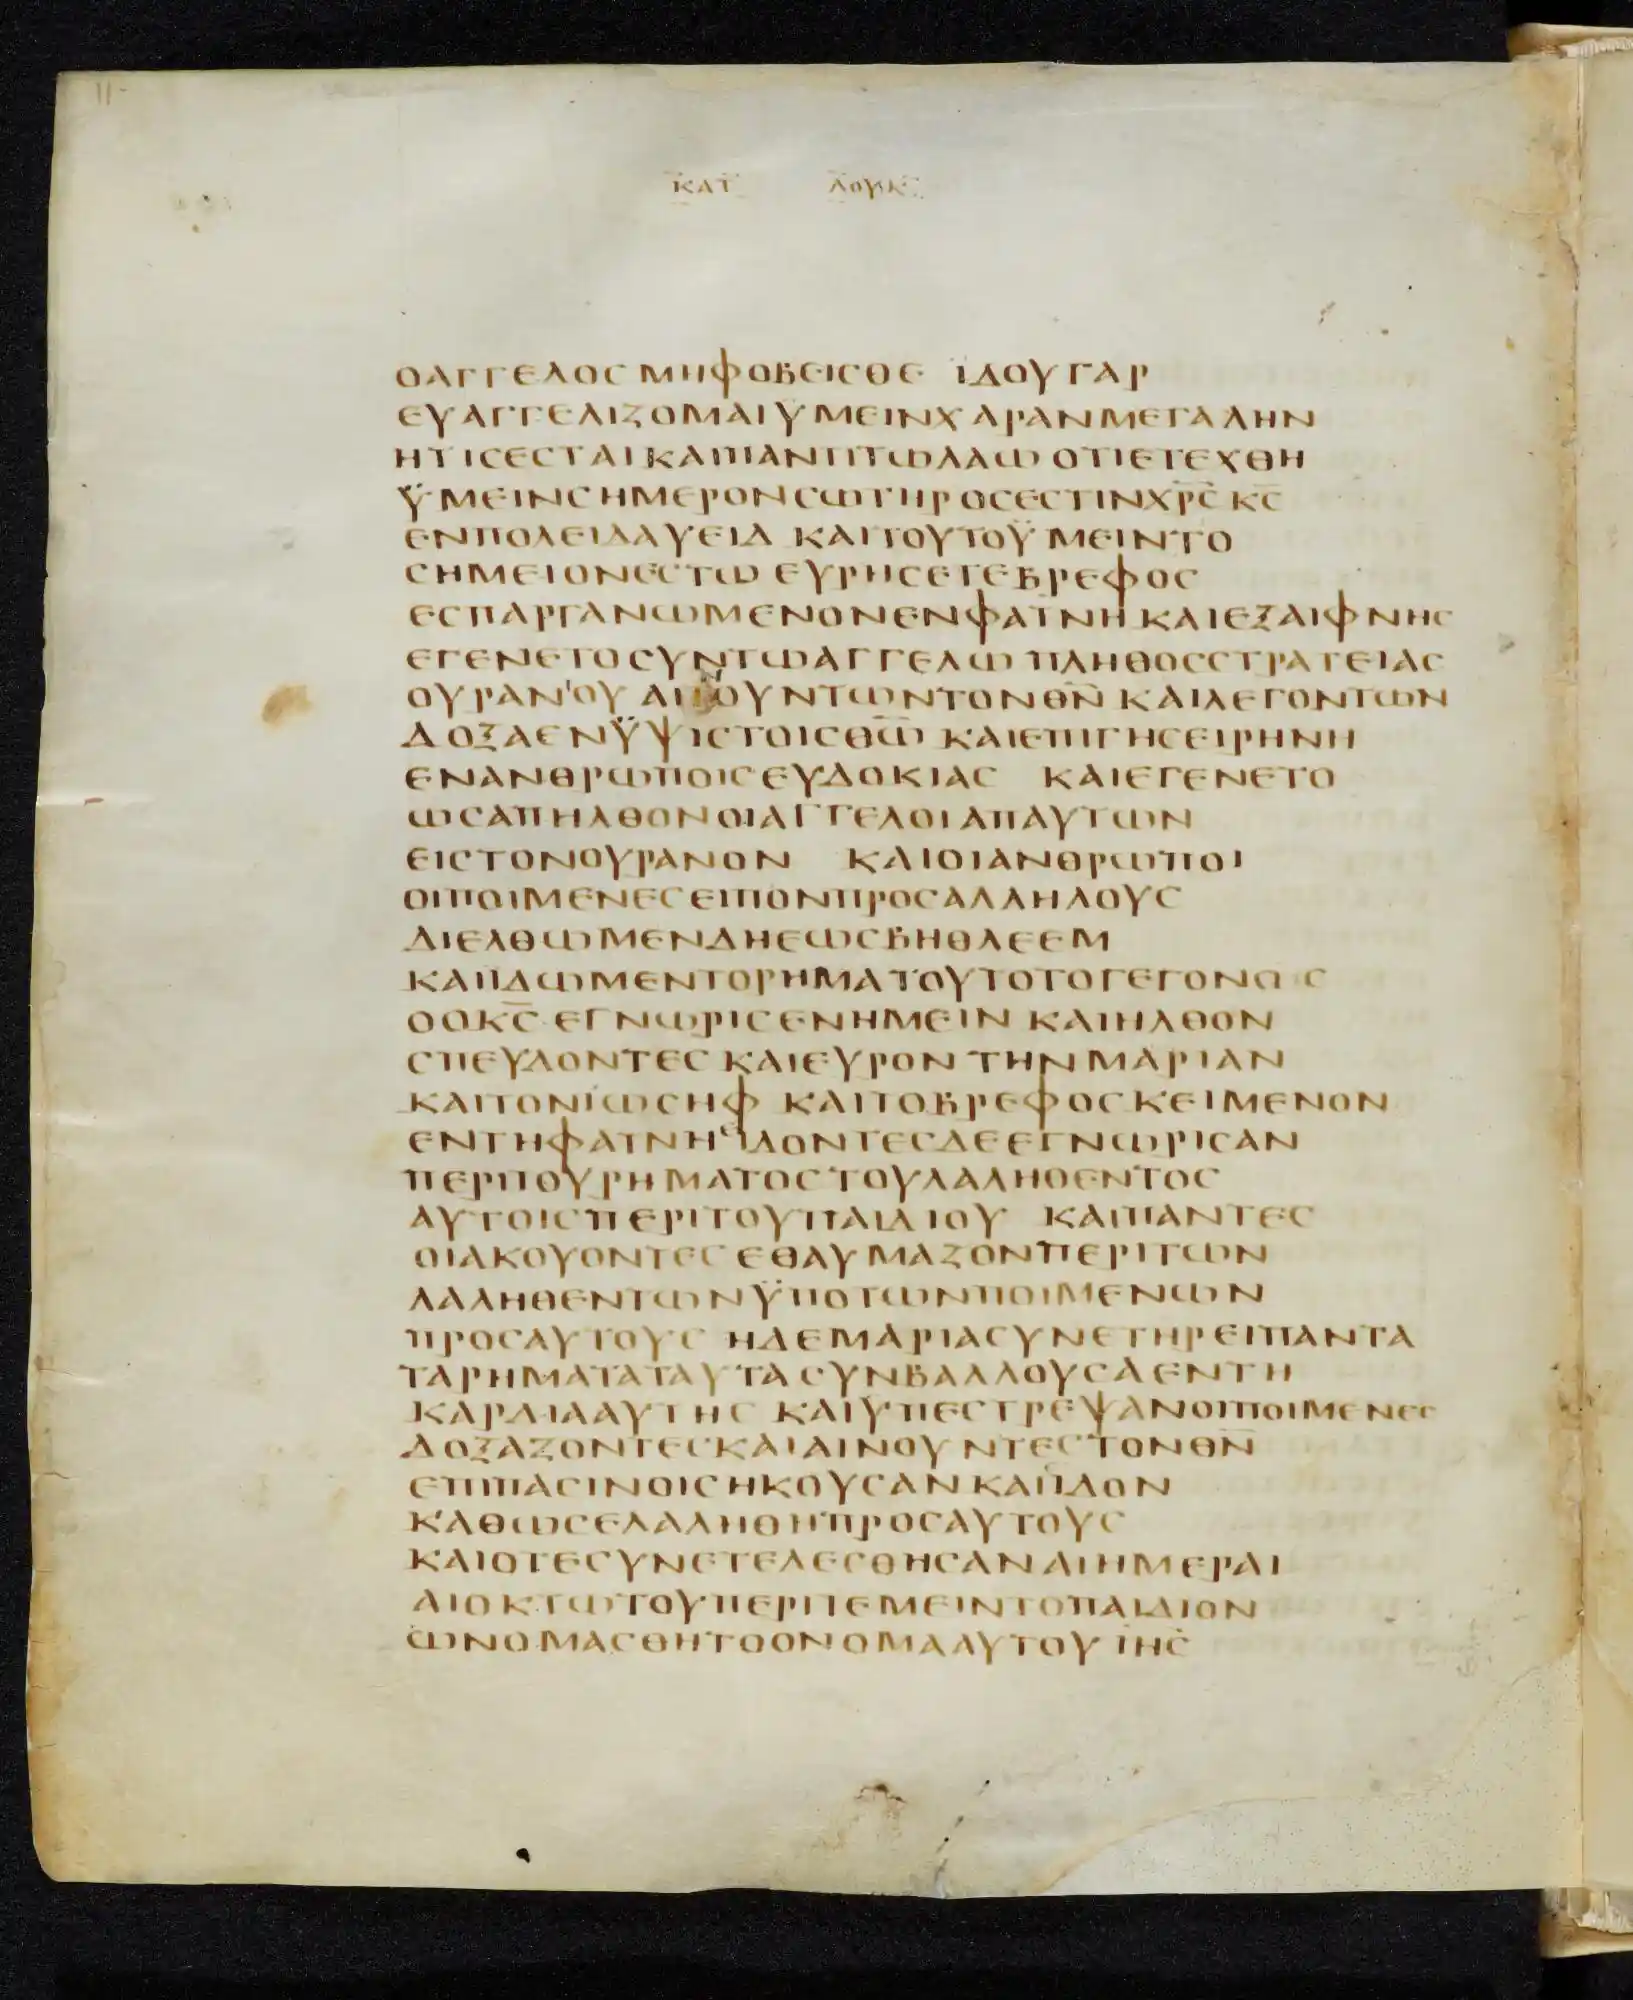 ΚΑΤ ΛΟΥΚ
ΟΑΓΓΕΛΟСΜΗΦΟΒΕΙСΘΕ ΪΔΟΥΓΑΡ
ΕΥΑΓΓΕΛΙΖΟΜΑΙΥΜΕΙΝΧΑΡΑΝΜΕΓΑΛΗΝ
ΗΤΙСΕСΤΑΙΚΑΙΠΑΝΤΙΤΩΛΑΩΟΤΙΕΤΕΧΘΗ
ΫΜΕΙΝСΗΜΕΡΟΝСΩΤΗΡΟСΕСΤΙΝΧΡ̅С̅ Κ̅С̅
ΕΝΠΟΛΕΙΔΑΥΕΙΔ ΚΑΙΤΟΥΤΟΫΜΕΙΝΤΟ
СΗΜΕΙΟΝΕСΤΩ ΕΥΡΗСΕΤΕΒΡΕΦΟС
ΕСΠΑΡΓΑΝΩΜΕΝΟΝΕΝΦΑΤΝΗΚΑΙΕΞΑΙΦΝΗС
ΕΓΕΝΕΤΟСΥΝΤΩΑΓΓΕΛΩΠΛΗΘΟССΤΡΑΤΕΙΑС
ΟΥΡΑΝΟΥ ΑΙΝΟΥΝΤΩΝΤΟΝΘ̅Ν̅ ΚΑΙΛΕΓΟΝΤΩΝ
ΔΟΞΑΕΝΫΨΙСΤΟΙСΘ̅Ω̅ ΚΑΙΕΠΙΓΗСΕΙΡΗΝΗ
ΕΝΑΝΘΡΩΠΟΙСΕΥΔΟΚΙΑС ΚΑΙΕΓΕΝΕΤΟ
ΩСΑΠΗΛΘΟΝΟΙΑΓΓΕΛΟΙΑΠΑΥΤΩΝ
ΕΙСΤΟΝΟΥΡΑΝΟΝ ΚΑΙΟΙΑΝΘΡΩΠΟΙ
ΟΙΠΟΙΜΕΝΕСΕΙΠΟΝΠΡΟСΑΛΛΗΛΟΥС
ΔΙΕΛΘΩΜΕΝΔΗΕΩСΒΗΘΛΕΕΜ
ΚΑΙΪΔΩΜΕΝΤΟΡΗΜΑΤΟΥΤΟΤΟΓΕΓΟΝΟС
ΟΟΚ̅С̅ ΕΓΝΩΡΙСΕΝΗΜΕΙΝ ΚΑΙΗΛΘΟΝ
СΠΕΥΔΟΝΤΕС ΚΑΙΕΥΡΟΝ ΤΗΝΜΑΡΙΑΝ
ΚΑΙΤΟΝΪΩСΗΦ ΚΑΙΤΟΒΡΕΦΟСΚΕΙΜΕΝΟΝ
ΕΝΤΗΦΑΤΝΗ ΕΙΔΟΝΤΕСΔΕΕΓΝΩΡΙСΑΝ
ΠΕΡΙΤΟΥΡΗΜΑΤΟСΤΟΥΛΑΛΗΘΕΝΤΟС
ΑΥΤΟΙСΠΕΡΙΤΟΥΠΑΙΔΙΟΥ ΚΑΙΠΑΝΤΕС
ΟΙΑΚΟΥΟΝΤΕСΕΘΑΥΜΑΖΟΝΠΕΡΙΤΩΝ
ΛΑΛΗΘΕΝΤΩΝΫΠΟΤΩΝΠΟΙΜΕΝΩΝ
ΠΡΟСΑΥΤΟΥС ΗΔΕΜΑΡΙΑСΥΝΕΤΗΡΕΙΠΑΝΤΑ
ΤΑΡΗΜΑΤΑΤΑΥΤΑСΥΝΒΑΛΛΟΥСΑΕΝΤΗ
ΚΑΡΔΙΑΑΥΤΗС ΚΑΙΥΠΕСΤΡΕΨΑΝΟΙΠΟΙΜΕΝΕС
ΔΟΞΑΖΟΝΤΕСΚΑΙΑΙΝΟΥΝΤΕСΤΟΝΘ̅Ν̅
ΕΠΙΠΑСΙΝΟΙСΗΚΟΥСΑΝΚΑΙΪΔΟΝ
ΚΑΘΩСΕΛΑΛΗΘΗΠΡΟСΑΥΤΟΥС
ΚΑΙΟΤΕСΥΝΕΤΕΛΕСΘΗСΑΝΑΙΗΜΕΡΑΙ
ΑΙΟΚΤΩΤΟΥΠΕΡΙΤΕΜΕΙΝΤΟΠΑΙΔΙΟΝ
ΩΝΟΜΑСΘΗΤΟΟΝΟΜΑΑΥΤΟΥ Ι̅Η̅С̅